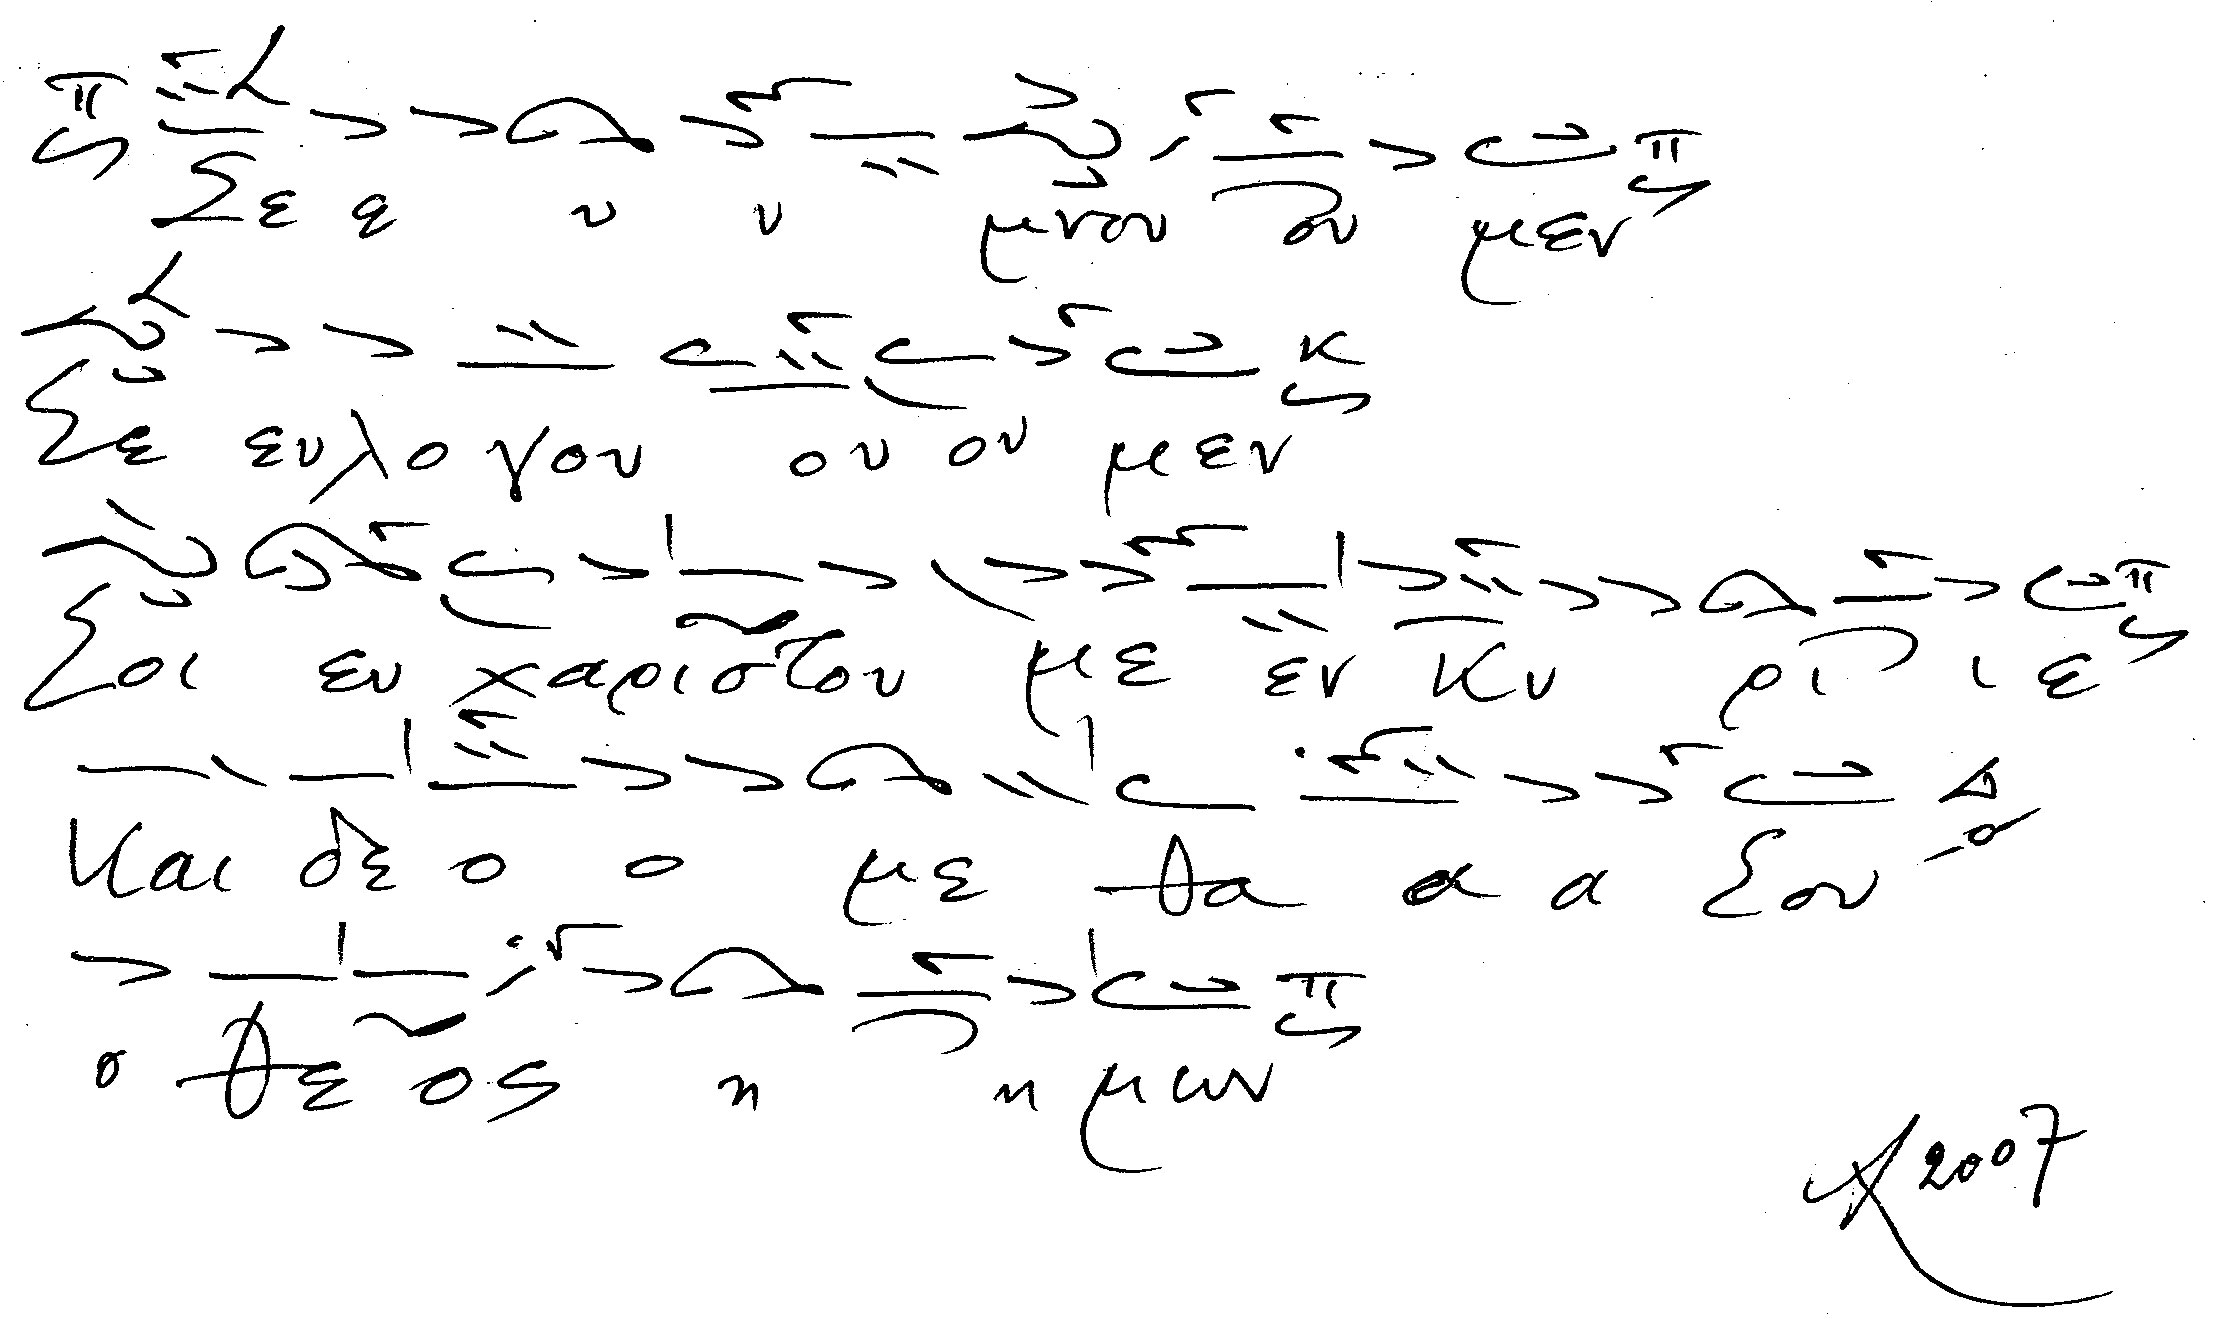 π Σε ε υ υ μνου ου μεν π
Σε ευλο γου ου ου μεν κ
Σοι ευ χαριστου με εν Κυ ρι ι ε π
Και δε ο ο με θα α α σου Δ
ο θε ος η η μων π
2007